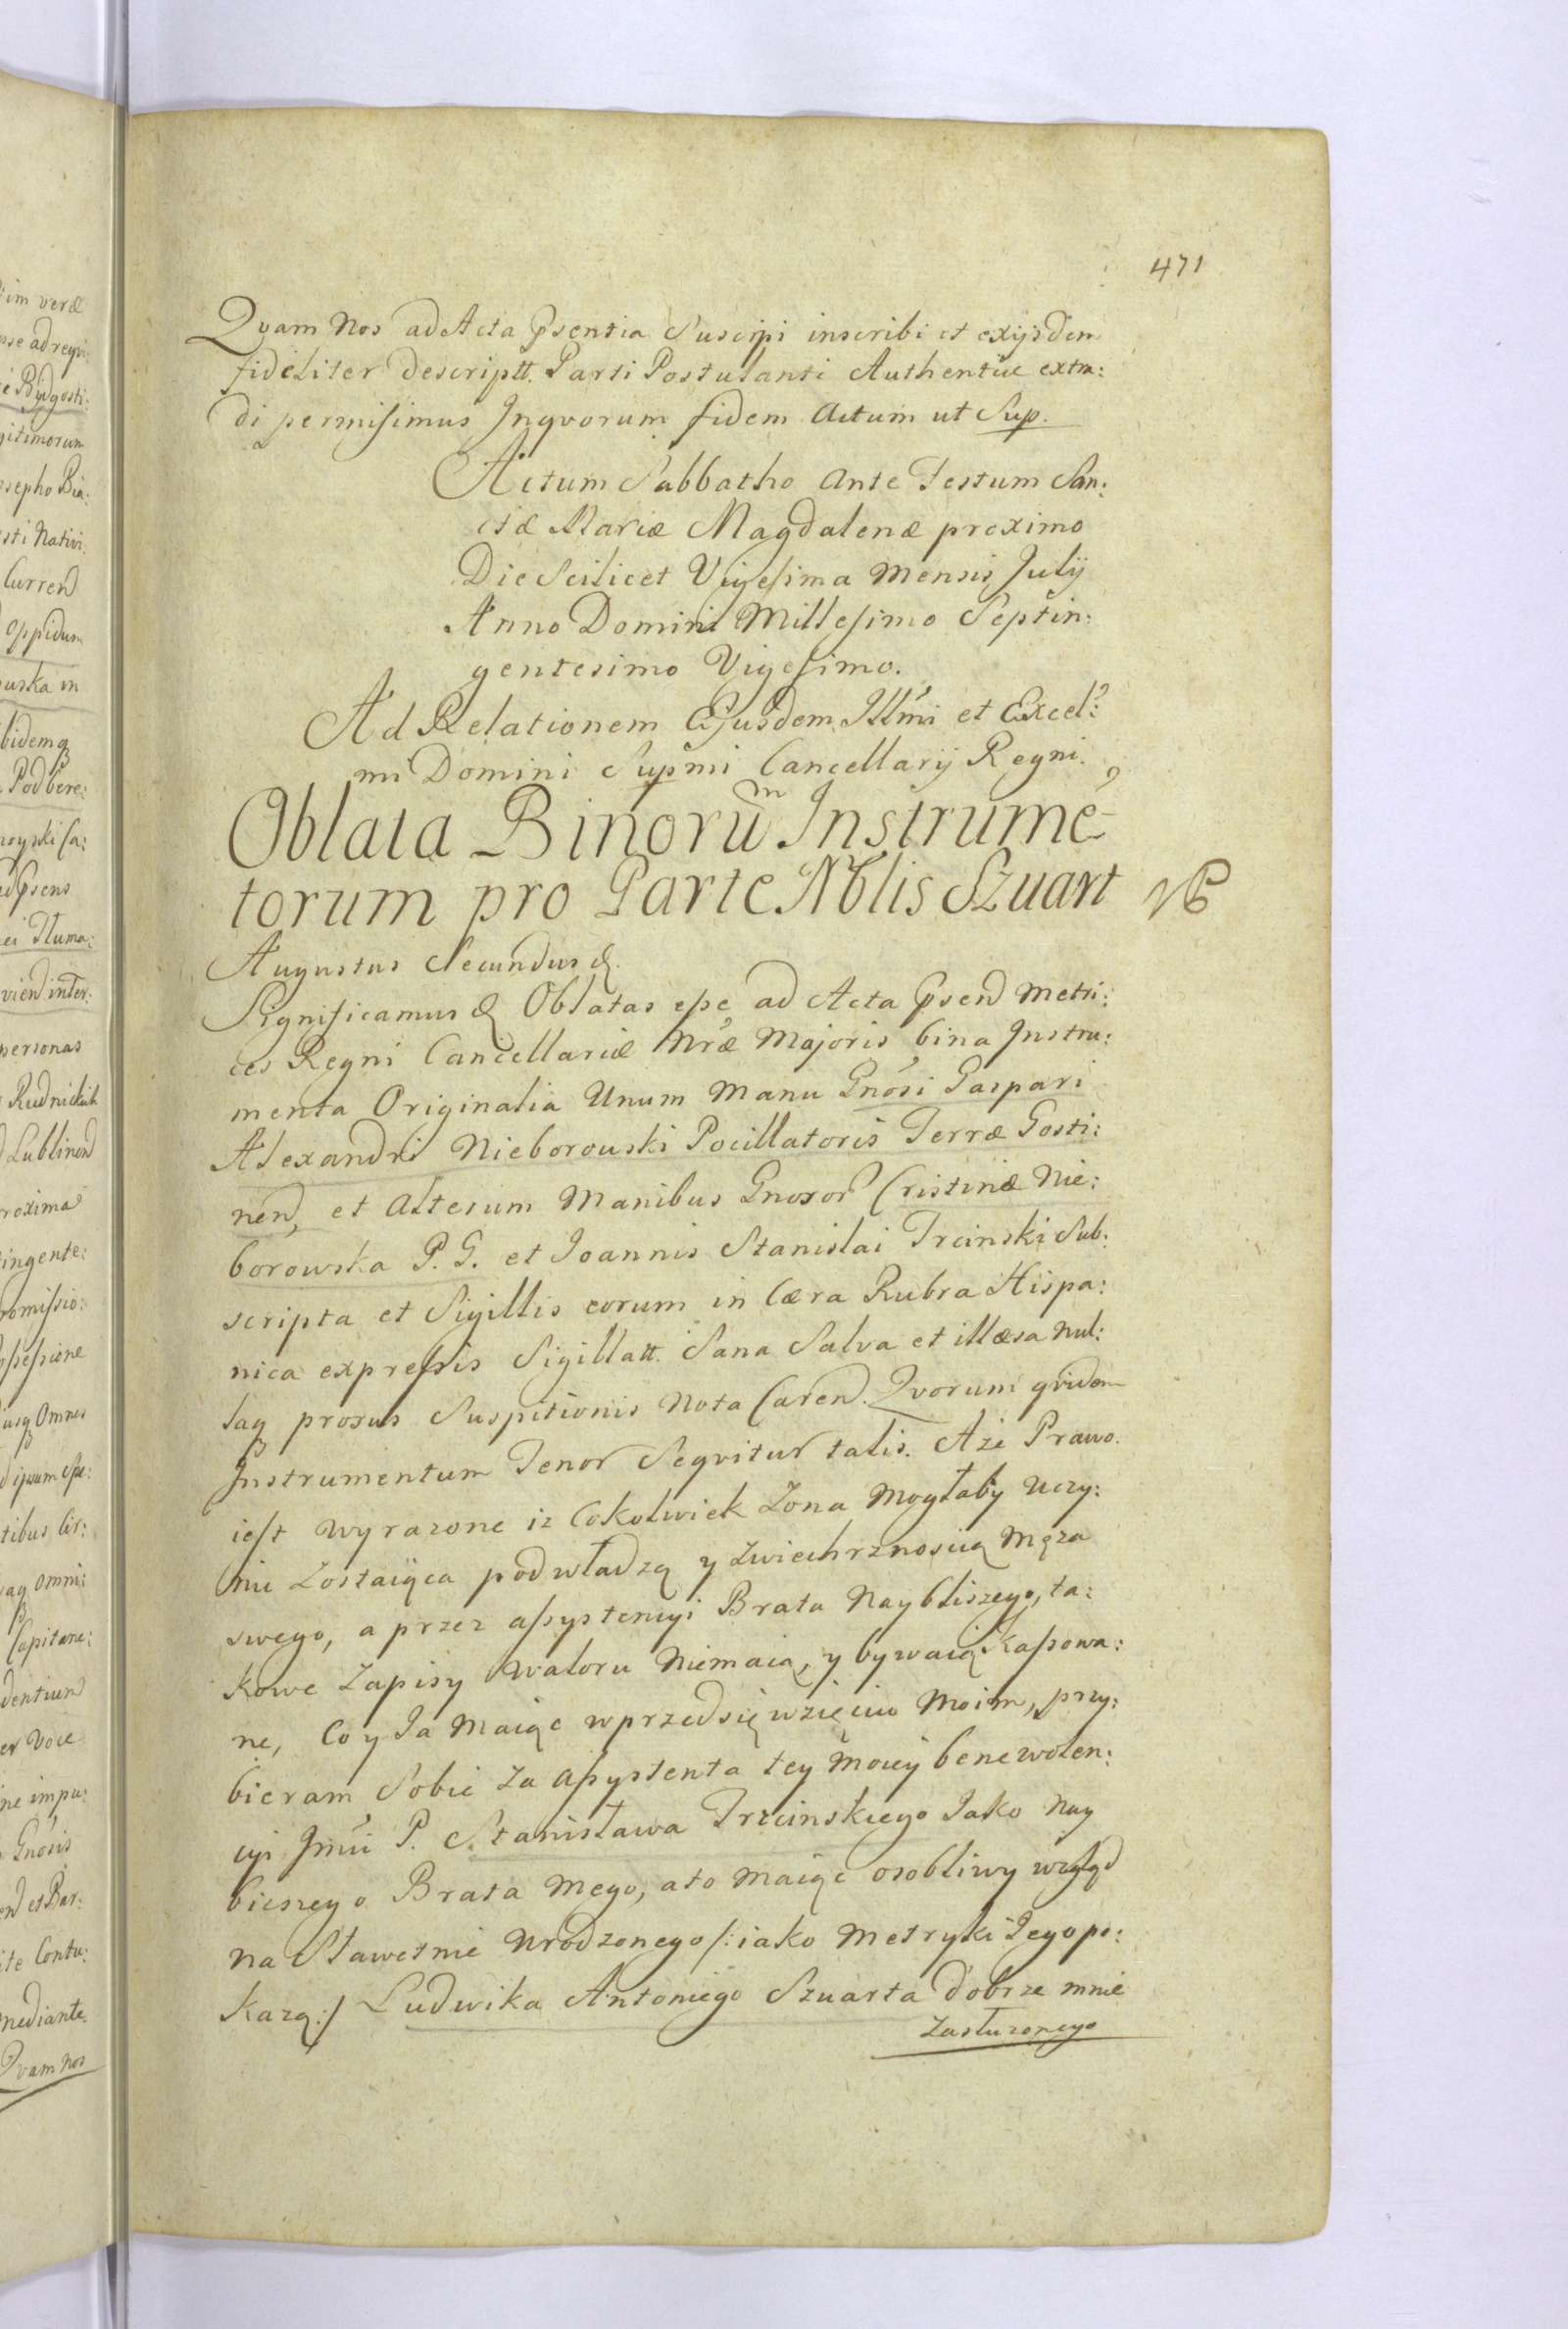 471
Qvam Nos ad Acta Psentia Suscipi inscribi et exijsdem
fideliter descriptt. Parti Postulanti Authentice extra:
di permisimus Inqvorum fidem Actum ut Sup.
Actum Sabbatho Ante Festum San:
ctæ Mariæ Magdalenæ proximo
Die Scilicet Vigesima Mensis Julij
Anno Domini Millesimo Septin:
gentesimo Vigesimo.
Ad Relationem Ejusdem Illmi et Excel:
mi Domini Supmi Cancellarij Regni.
Oblata Binorum Instrume-
torum pro Parte Nblis Szuart
NB
Augustus Secundus &.
Significamus & Oblatas esse ad Acta Psend Metri:
ces Regni Cancellariæ Nræ Majoris bina Instru:
menta Originalia Unum Manu Gnosi Gaspari
Alexandri Nieborouski Pocillatoris Terræ Gosti:
nen, et Alterum Manibus Gnosor Cristinæ Nie:
borowska P. G. et Joannis Stanislai Trcinski Sub:
scripta et Sigillis eorum in Cæra Rubra Hispa:
nica expressis Sigillatt. Sana Salva et illæsa nul:
laq prosus Suspitionis Nota Caren. Qvorum qvidem
Instrumentum Tenor Seqvitur talis. Aże Prawo.
iest wyrazone iz Cokolwiek Zona Mogłaby Uczy:
nic Zostaiąca pod władzą y Zwiechrznoscią Męza
swego, a przez assystencyi Brata Naybliszego, ta:
kowe Zapisy Waloru Niemaią, y bywaią Kassowa:
ne, Co y Ja Maiąc w przedsięwzięciu Moim, przy:
bieram Sobie Za Assystenta tey Moiey benewolen:
cyi Jmci P. Stanisława Trzcinskiego Jako Nay
bieszego Brata Mego, ato Maiąc osobliwy wzgląd
na Sławetnie Urodzonego /: iako Metryki Jego po:
kazą :/ Ludwika Antoniego Szuarta dobrze mnie
Zasłuzonego